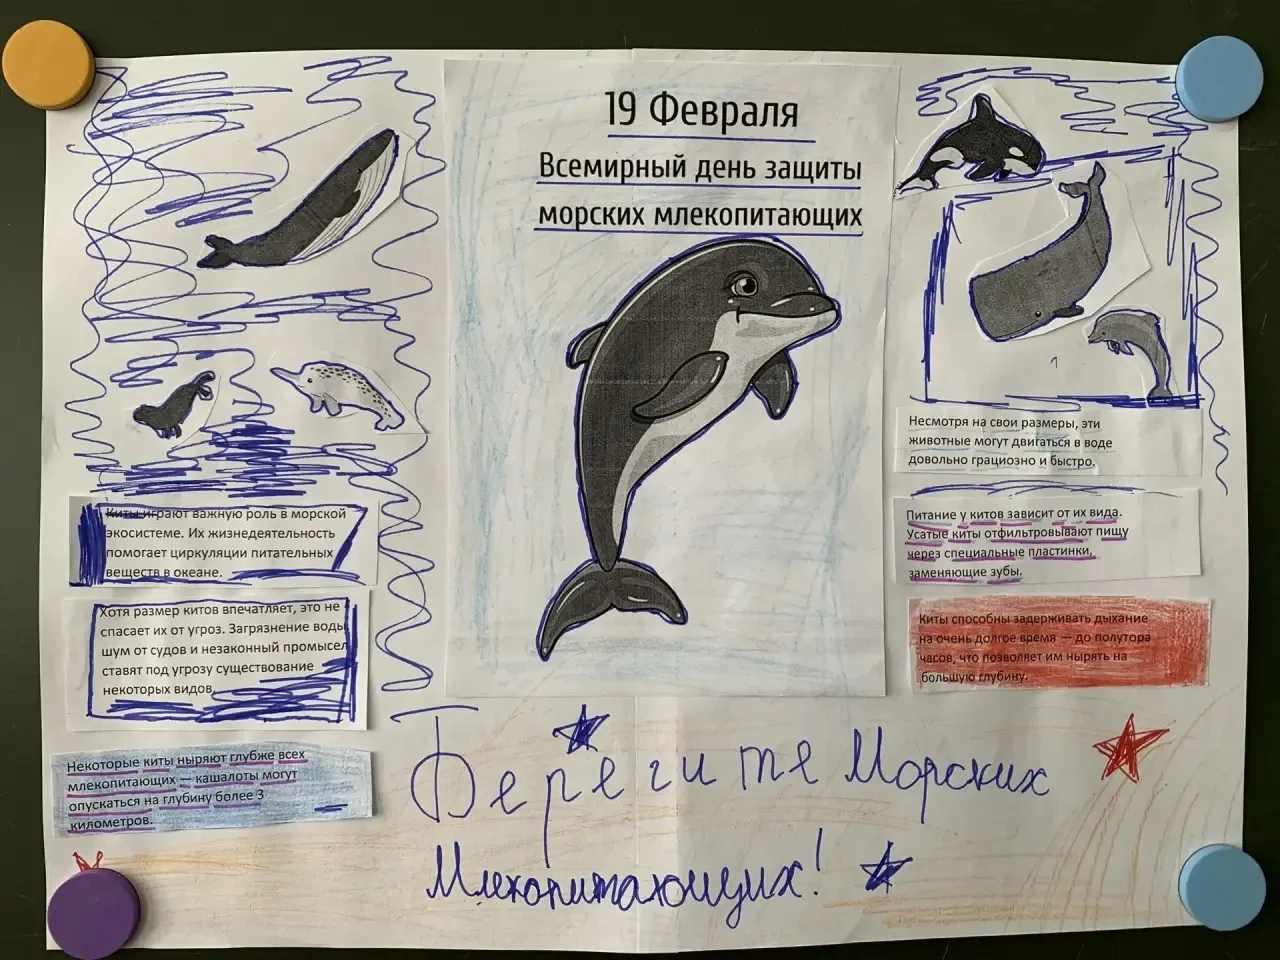 19 Февраля
Всемирный день защиты
морских млекопитающих
Киты играют важную роль в морской
экосистеме. Их жизнедеятельность
помогает циркуляции питательных
веществ в океане.
Хотя размер китов впечатляет, это не
спасает их от угроз. Загрязнение воды,
шум от судов и незаконный промысел
ставят под угрозу существование
некоторых видов.
Некоторые киты ныряют глубже всех
млекопитающих — кашалоты могут
опускаться на глубину более 3
километров.
Несмотря на свои размеры, эти
животные могут двигаться в воде
довольно грациозно и быстро.
Питание у китов зависит от их вида.
Усатые киты отфильтровывают пищу
через специальные пластинки,
заменяющие зубы.
Киты способны задерживать дыхание
на очень долгое время — до полутора
часов, что позволяет им нырять на
большую глубину.
Берегите Морских
Млекопитающих!